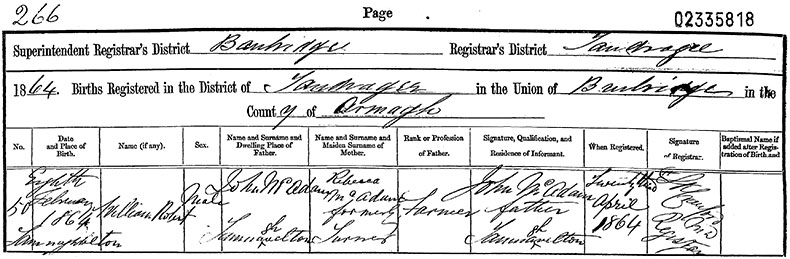 266 Page 02335818
Superintendent Registrar's District Banbridge Registrar's District Tandragee
1864. Births Registered in the District of Tandragee in the Union of Banbridge in the
County of Armagh
No. Date and Place of Birth. Name (if any). Sex. Name and Surname and Dwelling Place of Father. Name and Surname and Maiden Surname of Mother. Rank or Profession of Father. Signature, Qualification, and Residence of Informant. When Registered. Signature of Registrar. Baptismal Name if added after Registration of Birth and
50 Eighth February 1864 William Robert Male John McAdam Rebecca McAdam formerly Turner Farmer John McAdam father Twenty third April 1864 Registrar